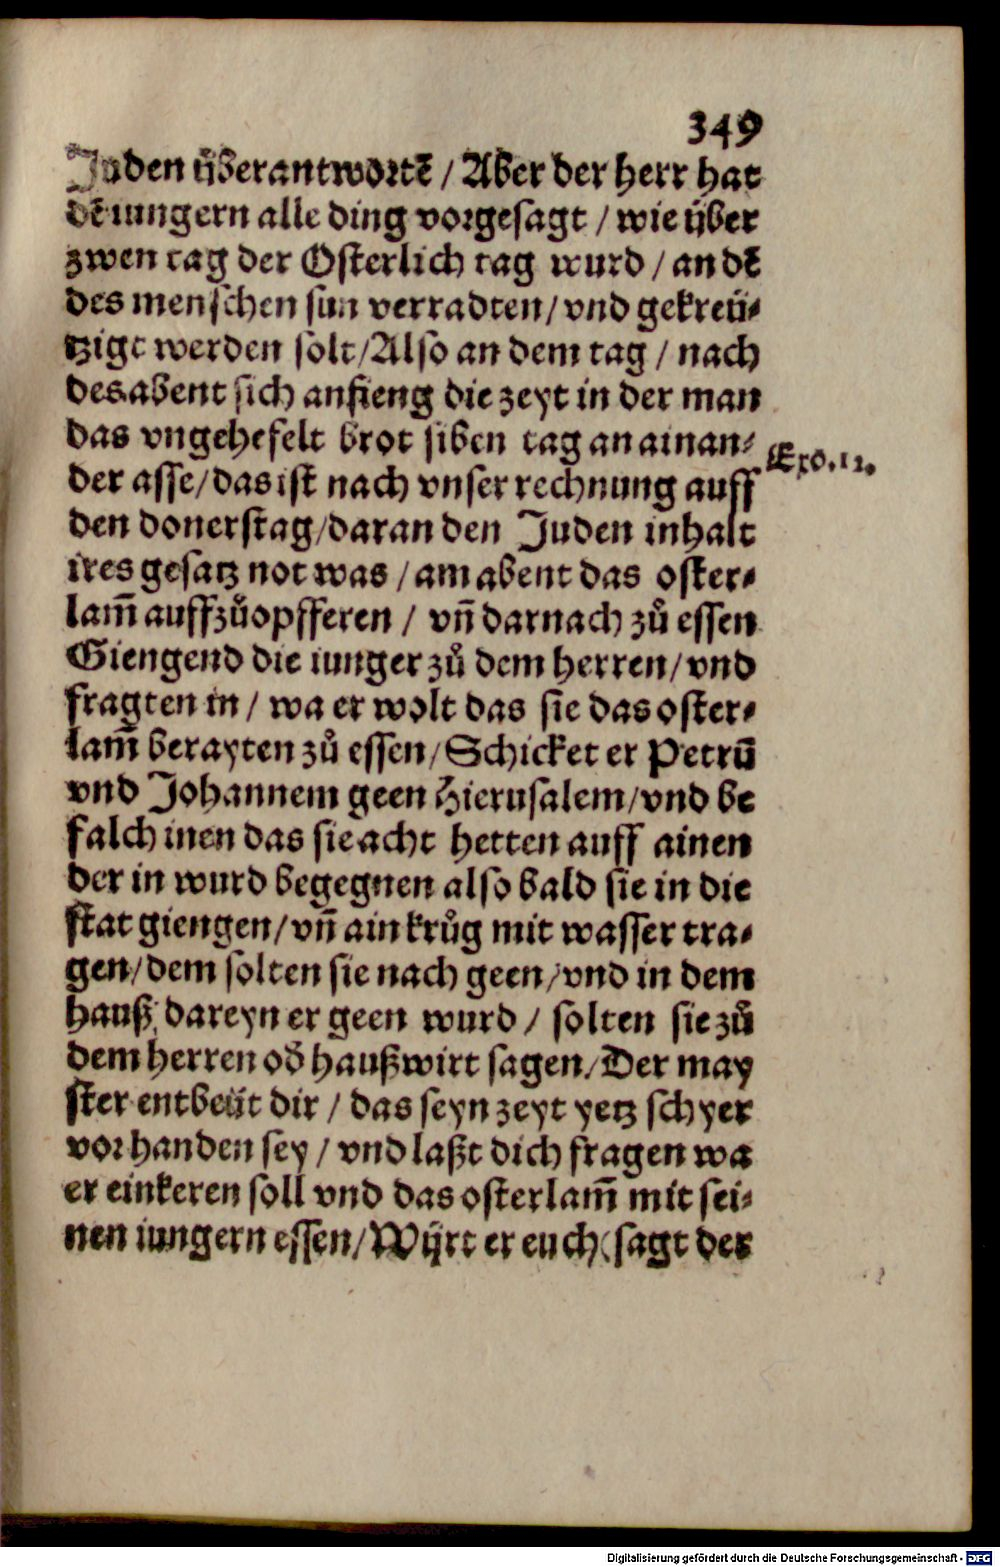 349
Juden überantwortē / Aber der herr hat
dē iungern alle ding vorgesagt / wie über
zwen tag der Osterlich tag wurd / an dē
des menschen sun verradten / vnd gekreü⸗
tzigt werden solt / Also an dem tag / nach
des abent sich anfieng die zeyt in der man
das vngehefelt brot siben tag an ainan⸗
Exo. 12.
der asse / das ist nach vnser rechnung auff
den donerstag / daran den Juden inhalt
ires gesatz not was / am abent das oster⸗
lam̄ auffzůopfferen / vn̄ darnach zů essen
Giengend die iunger zů dem herren / vnd
fragten in / wa er wolt das sie das oster⸗
lam̄ berayten zů essen / Schicket er Petrū
vnd Johannem geen Hierusalem / vnd be
falch inen das sie acht hetten auff ainen
der in wurd begegnen also bald sie in die
stat giengen / vn̄ ain krůg mit wasser tra⸗
gen / dem solten sie nach geen / vnd in dem
hauß dareyn er geen wurd / solten sie zů
dem herren od̄ haußwirt sagen / Der may
ster entbeüt dir / das seyn zeyt yetz schyer
vorhanden sey / vnd laßt dich fragen wa
er einkeren soll vnd das osterlam̄ mit sei⸗
nen iungern essen / Würt er euch (sagt der
Digitalisierung gefördert durch die Deutsche Forschungsgemeinschaft - DFG